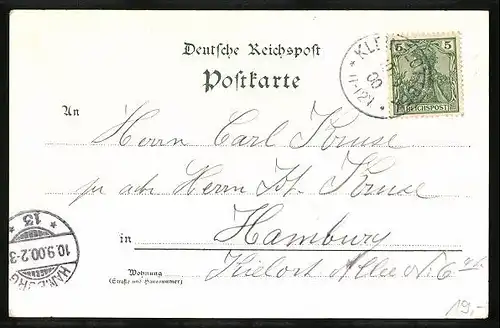 Deutsche Reichspost
Postkarte
5 5
REICHSPOST
An
Herrn Carl Kruse
pr adr Herrn Kruse
in Hamburg
Wohnung
(Straße und Hausnummer)
Kielort Allee No 6
* 13 *
10.9.00.2-3
HAMBURG
19,-